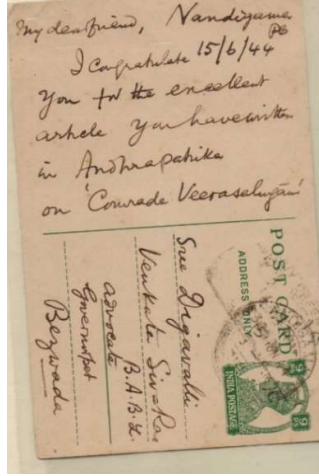 My dear friend, Nandigama
PO
15/6/44
I congratulate
you for the excellent
article you have written
in Andhrapatrika
on 'Comrade Veerasalingam'
POST CARD
ADDRESS ONLY
9 PS 9 PS
INDIA POSTAGE
Sree Digavalli
Venkata Siva Rao
B.A.B.L.
advocate
Governorpet
Bezwada